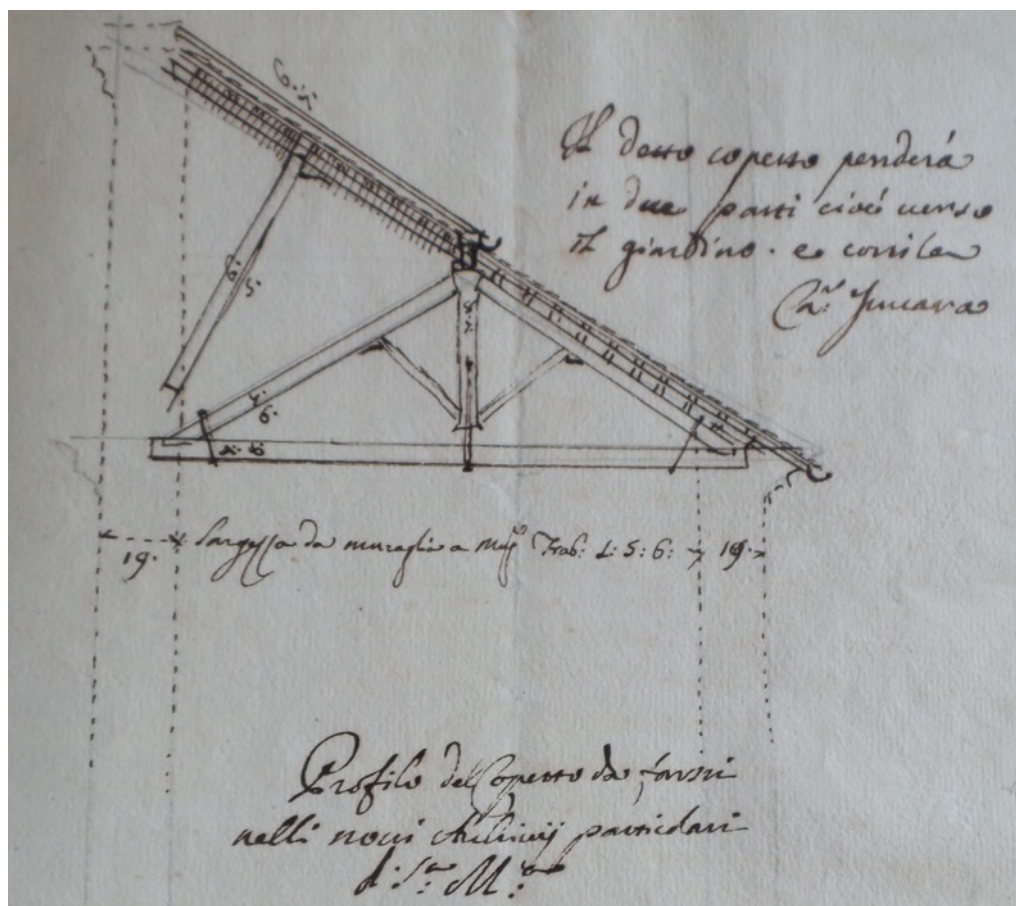 6: 7.
Il detto coperto penderá
in due parti cioé verso
il giardino. e cortile
Cav. Juvara
6: 5.
4: 6.
4: 6.
19. Largezza da muraglia a Mur. Trab: L: 5: 6: 19.
Profilo del Coperto da farsi
nelli novi Archivij particolari
di S. M.